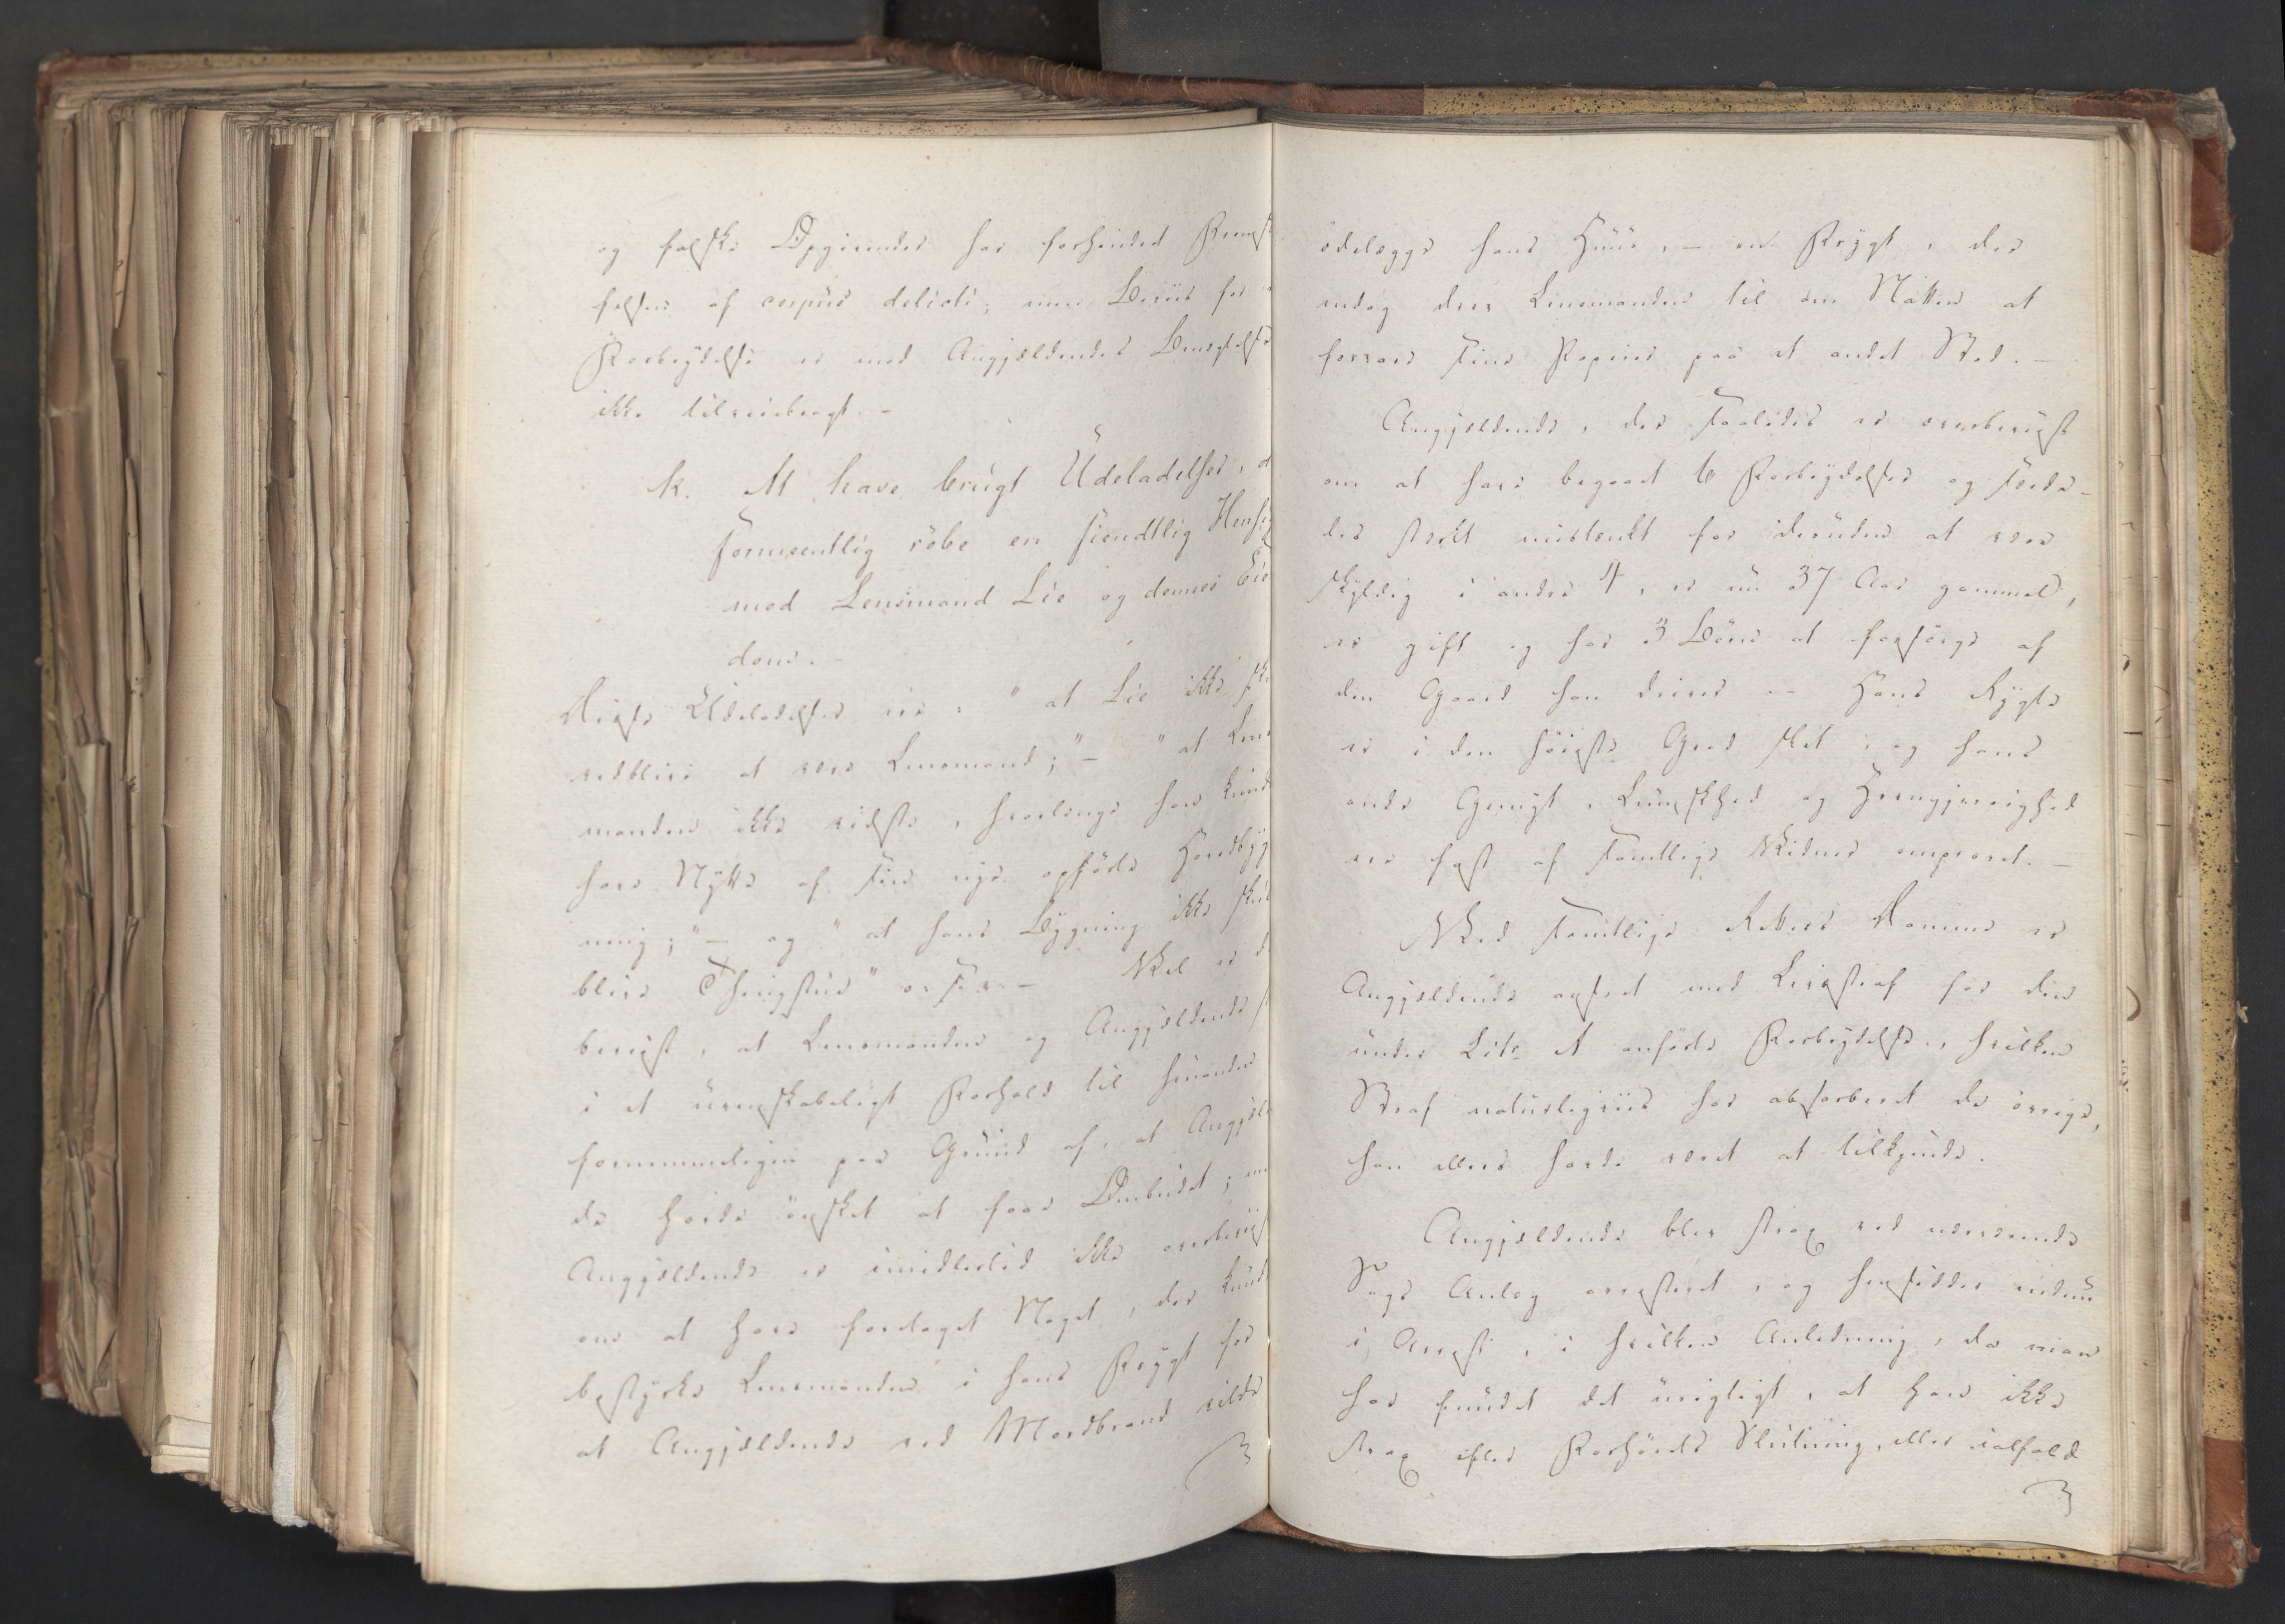 og falske Opgivender har forhindret Fremst
felsen af corpus delicti; men Beviis for
Forbrydelse er mod Angjældendes Benegtelse
ikke tilveiebragt. -
k. At have brugt Udeladelser, d
formeentlig röbe en fiendtlig Hensig
mod Lensmand Lie og dennes Eie
dom. -
Disse Udeladelser ere: "at Lie ikke sku
vedblive at være Lensmand;" - "at Lens
manden ikke vidste, hvorlænge han kunde
have Nytte af sin nye opförte Hovedbyg
ning;" - og "at hans Bygning ikke skul
blive Thingstue" o. s. v. - Vel er d
beviist, at Lensmanden og Angjældende s
i et uvenskabeligt Forhold til hinanden
fornemmeligen paa Grund af, at Angjæld
de havde önsket at faae Ombudet; men
Angjældende er imidlertid ikke overbeviist
om at have foretaget Noget, der kunde
bestyrke Lensmanden i hans Frygt for
at Angjældende ved Mordbrand vilde
ödelægge hans Huus, - en Frygt, der
endog drev Lensmanden til om Natten at
forvare sine Papirer paa et andet Sted. -
Angjældende, der saaledes er overbeviist
om at have begaaet 6 Forbrydelser og sees-
des stærkt mistænkt for desuden at være
skyldig i andre 4, er nu 37 Aar gammel,
er gift og har 3 Börn at forsörge af
den Gaard han driver. - Hans Rygte
er i den höieste Grad slet, og hans
onde Gemyt, Lumskhed og Hevngjerrighed
ere fast af samtlige Vidner omprovet. -
Ved samtlige Retters Domme er
Angjældende anseet med Livsstraf for den
under Litr A anförte Forbrydelse, hvilken
Straf naturligviis har absorberet de övrige,
han ellers havde været at tilkjende.
Angjældende blev strax ved nærværende
Sags Anlæg arresteret, og hensidder endnu
i Arrest, i hvilken Anledning, da man
har fundet det urigtigt, at han ikke
strax efter Forhörets Slutning, eller ialfald